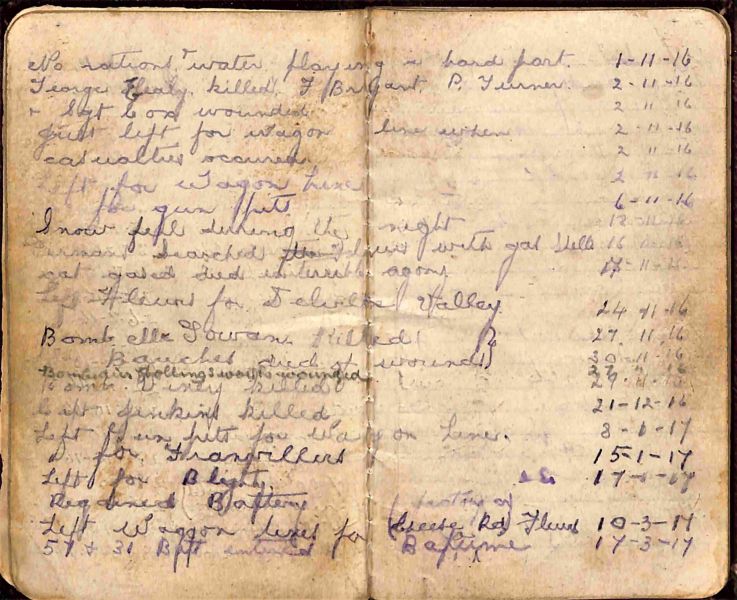 No rations & water playing a hard part. 1-11-16
George Healy killed F Bryant P. Turner. 2-11-16
+ Sgt Cox wounded 2 11 16
Just left for wagon line when 2-11-16
casualties occured 2 11-16
Left for Wagon Line 2 11-16
for gun pits 6-11-16
Snow fell during the night 18-11-16
Germans searched with gas shells 16
rat gased died in terrible agony 17-11-16
Left Fleurs for Valley 24-11-16
Bomb Mc Gowan Killed 27 11-16
died of wounds 30-11-16
wounded
killed 29-11-16
Jenkins killed 21-12-16
Left Gun pits for Wagon Lines. 8-1-17
for Franvillers 15-1-17
Left for Blighty 17-1-17
Regained Battery
Left Waggon lines for position of (Cheese Rd) Fleurs 10-3-17
57 & 31 Batt entered Bapaume 17-3-17